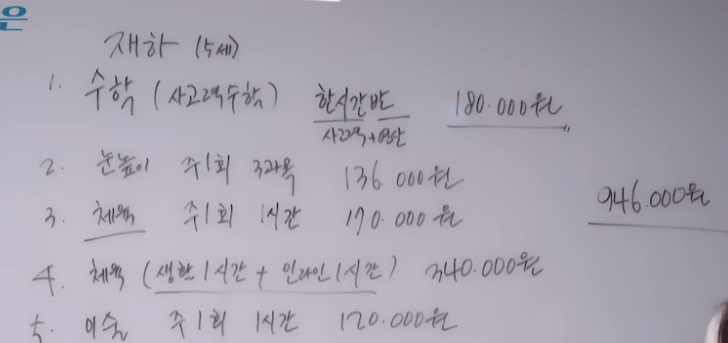 은
재하 (5세)
1. 수학 (사고력수학) 한시간반 180.000원
사고력+연산
2. 눈높이 주1회 3과목 136.000원
946.000원
3. 체육 주1회 1시간 170.000원
4. 체육 (생활1시간 + 인라인1시간) 340.000원
5. 미술 주1회 1시간 120.000원